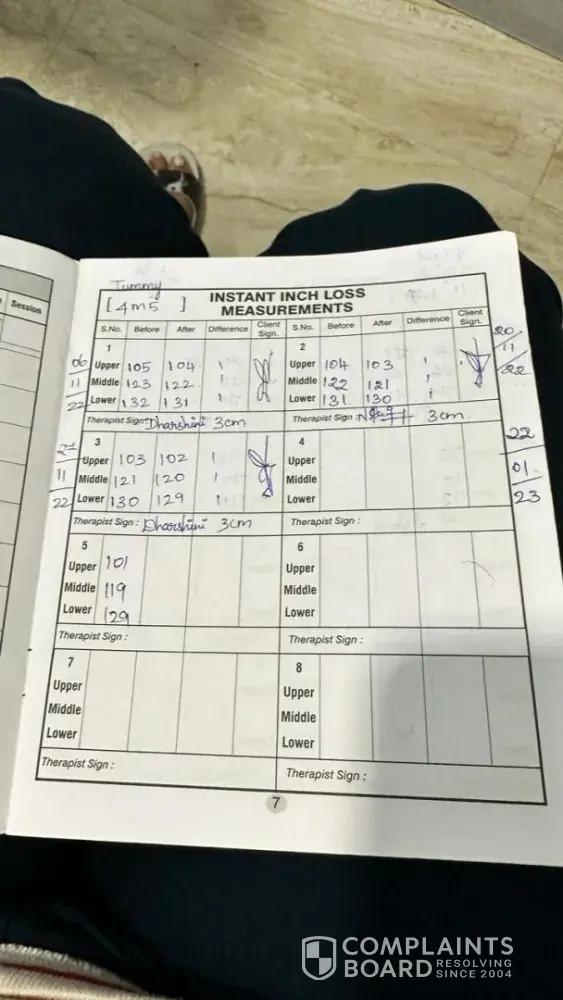 Session
Tummy
[ 4m5 ]
INSTANT INCH LOSS
MEASUREMENTS
S.No. Before After Difference Client Sign. S.No. Before After Difference Client Sign.
06
11
22
1
Upper 105 104 1
Middle 123 122 1
Lower 132 131 1
Therapist Sign: Dharshini 3cm
2
Upper 104 103 1
Middle 122 121 1
Lower 131 130 1
Therapist Sign : 3cm
20
11
22
27
11
22
3
Upper 103 102 1
Middle 121 120 1
Lower 130 129 1
Therapist Sign : Dharshini 3cm
4
Upper
Middle
Lower
Therapist Sign :
22
01
23
5
Upper 101
Middle 119
Lower 129
Therapist Sign :
6
Upper
Middle
Lower
Therapist Sign :
7
Upper
Middle
Lower
Therapist Sign :
8
Upper
Middle
Lower
Therapist Sign :
7
COMPLAINTS
BOARD RESOLVING
SINCE 2004